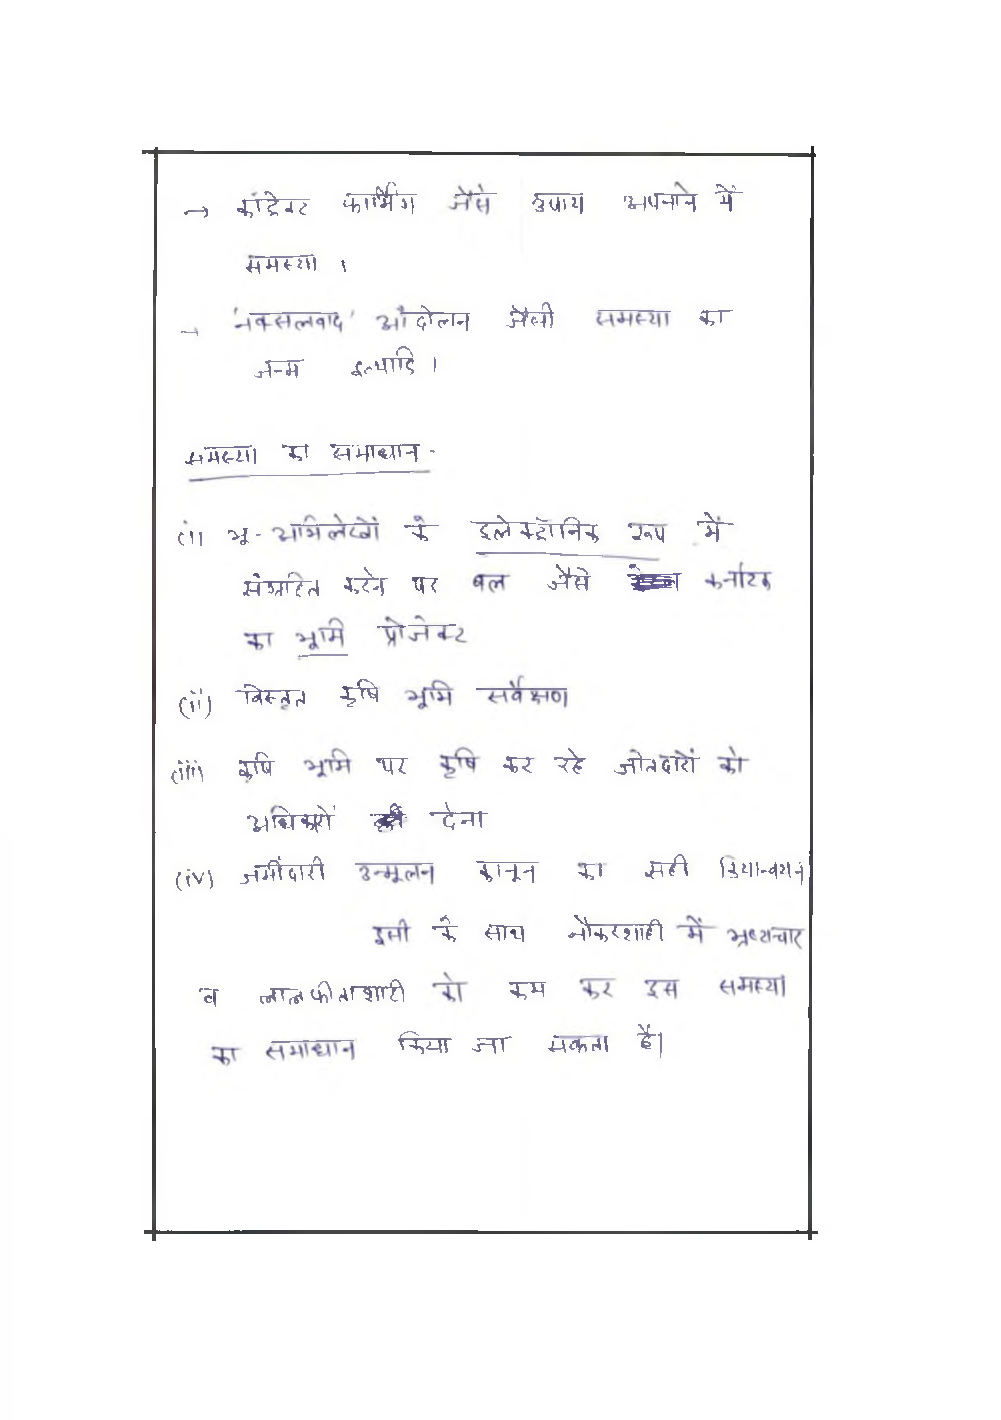 → कांट्रेक्ट फार्मिंग जैसे उपाय अपनाने में
समस्या ।
→ 'नक्सलवाद' आंदोलन जैसी समस्या का
जन्म इत्यादि ।
समस्या का समाधान -
(i) भू-अभिलेखों के इलेक्ट्रॉनिक रूप में
संग्रहित करने पर बल जैसे कर्नाटक
का भूमि प्रोजेक्ट
(ii) विस्तृत कृषि भूमि सर्वेक्षण
(iii) कृषि भूमि पर कृषि कर रहे जोतदारों को
अधिकारों देना
(iv) जमींदारी उन्मूलन कानून का सही क्रियान्वयन
इसी के साथ नौकरशाही में भ्रष्टाचार
व लालफीताशाही को कम कर इस समस्या
का समाधान किया जा सकता है।